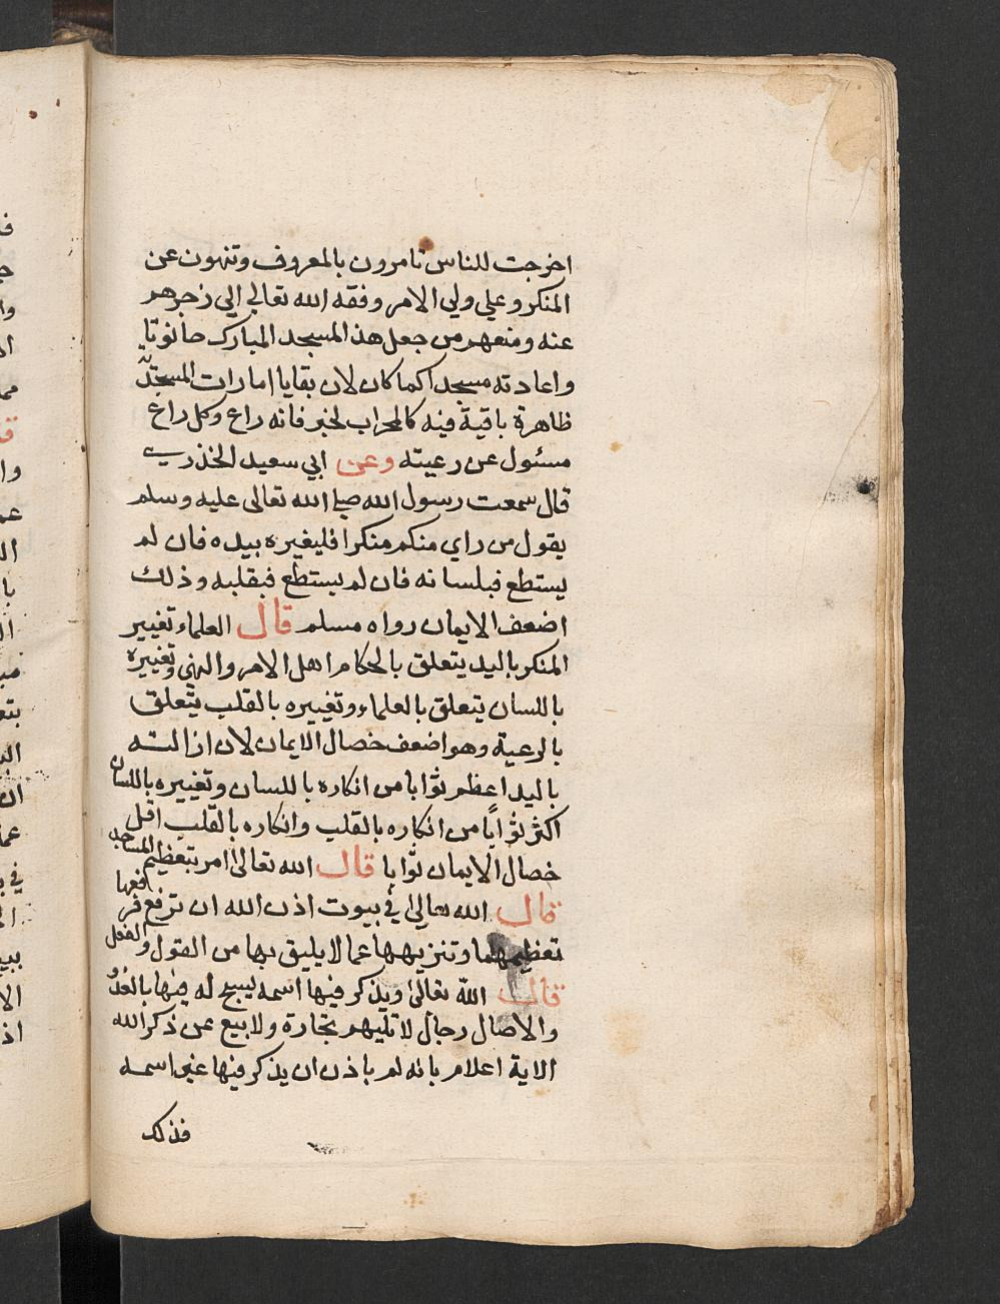 اخرجت للناس تامرون بالمعروف وتنهون عن
المنكر وعلي ولي الامر وفقه الله تعالي الي زجرهم
عنه ومنعهم من جعل هذ المسجد المبارك حانوتا
واعادته مسجدا كما كان لان بقايا امارات المسجدية
ظاهرة باقية فيه كالمحراب لخبر فانه راع وكل راع
مسئول عن رعيته وعن ابي سعيد الخذري
قال سمعت رسول الله صلي الله تعالى عليه وسلم
يقول من راي منكم منكرا فليغيره بيده فان لم
يستطع فبلسانه فان لم يستطع فبقلبه وذلك
اضعف الايمان رواه مسلم قال العلماء تغيير
المنكر باليد يتعلق بالحكام اهل الامر والنهي وتغييره
باللسان يتعلق بالعلماء وتغييره بالقلب يتعلق
بالرعية وهو اضعف خصال الايمان لان ازالته
باليد اعظم ثوابا من انكاره باللسان وتغييره باللسان
اكثر ثوابا من انكاره بالقلب وانكاره بالقلب اقل
خصال الايمان ثوابا قال الله تعالى امر بتعظيم المساجد
قال الله تعالى في بيوت اذن الله ان ترفع فرافعها
تعظيمها وتنزيهها عما لا يليق بها من القول والفعل
قال الله تعالى ويذكر فيها اسمه يسبح له فيها بالغدو
والاصال رجال لا تلهيهم تجارة ولا بيع عن ذكر الله
الاية اعلام بانه لم ياذن ان يذكر فيها غير اسمه
فذلك